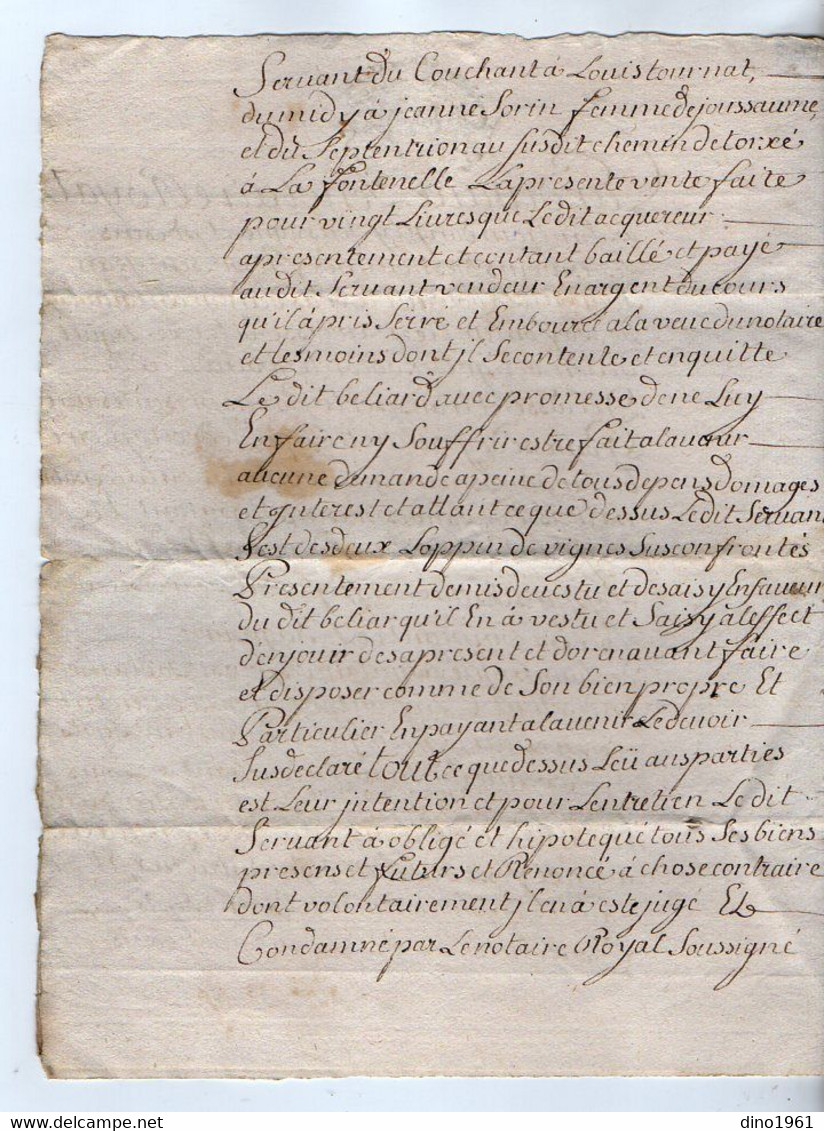 Servant du Couchant à Louis tournat,
du midy à jeanne Sorin femme de joussaume,
et du Septentrion au susdit chemin de torxé
à La fontenelle La presente vente faite
pour vingt Livres que Ledit acquereur
apresentement et contant baillé et payé
audit Servant vendeur En argent du cours
qu'il à pris Serré et Emboursé a la veue du notaire
et tesmoins dont jl Se contente et en quitte
Le dit beliard avec promesse de ne Luy
En faire ny Souffrir estre fait a l'avenir
aucune demande a peine de tous depens domages
et jnterest et attant ce que dessus Le dit Servant
s'est des deux Loppin de vignes Susconfrontés
Presentement demis devestu et desaisy En faveur
du dit beliar qu'il En à vestu et Saisy à l'effect
d'en jouir des apresent et dorenavant faire
et disposer comme de Son bien propre Et
Particulier En payant a l'avenir Le devoir
Susdeclaré tout ce que dessus Leü aus parties
est Leur jntention et pour L'entretien Le dit
Servant à obligé et hipotequé tous Ses biens
presens et futurs et Renoncé à chose contraire
dont volontairement jl en à esté jugé Et
Condamné par Le notaire Royal Soussigné
dino1961